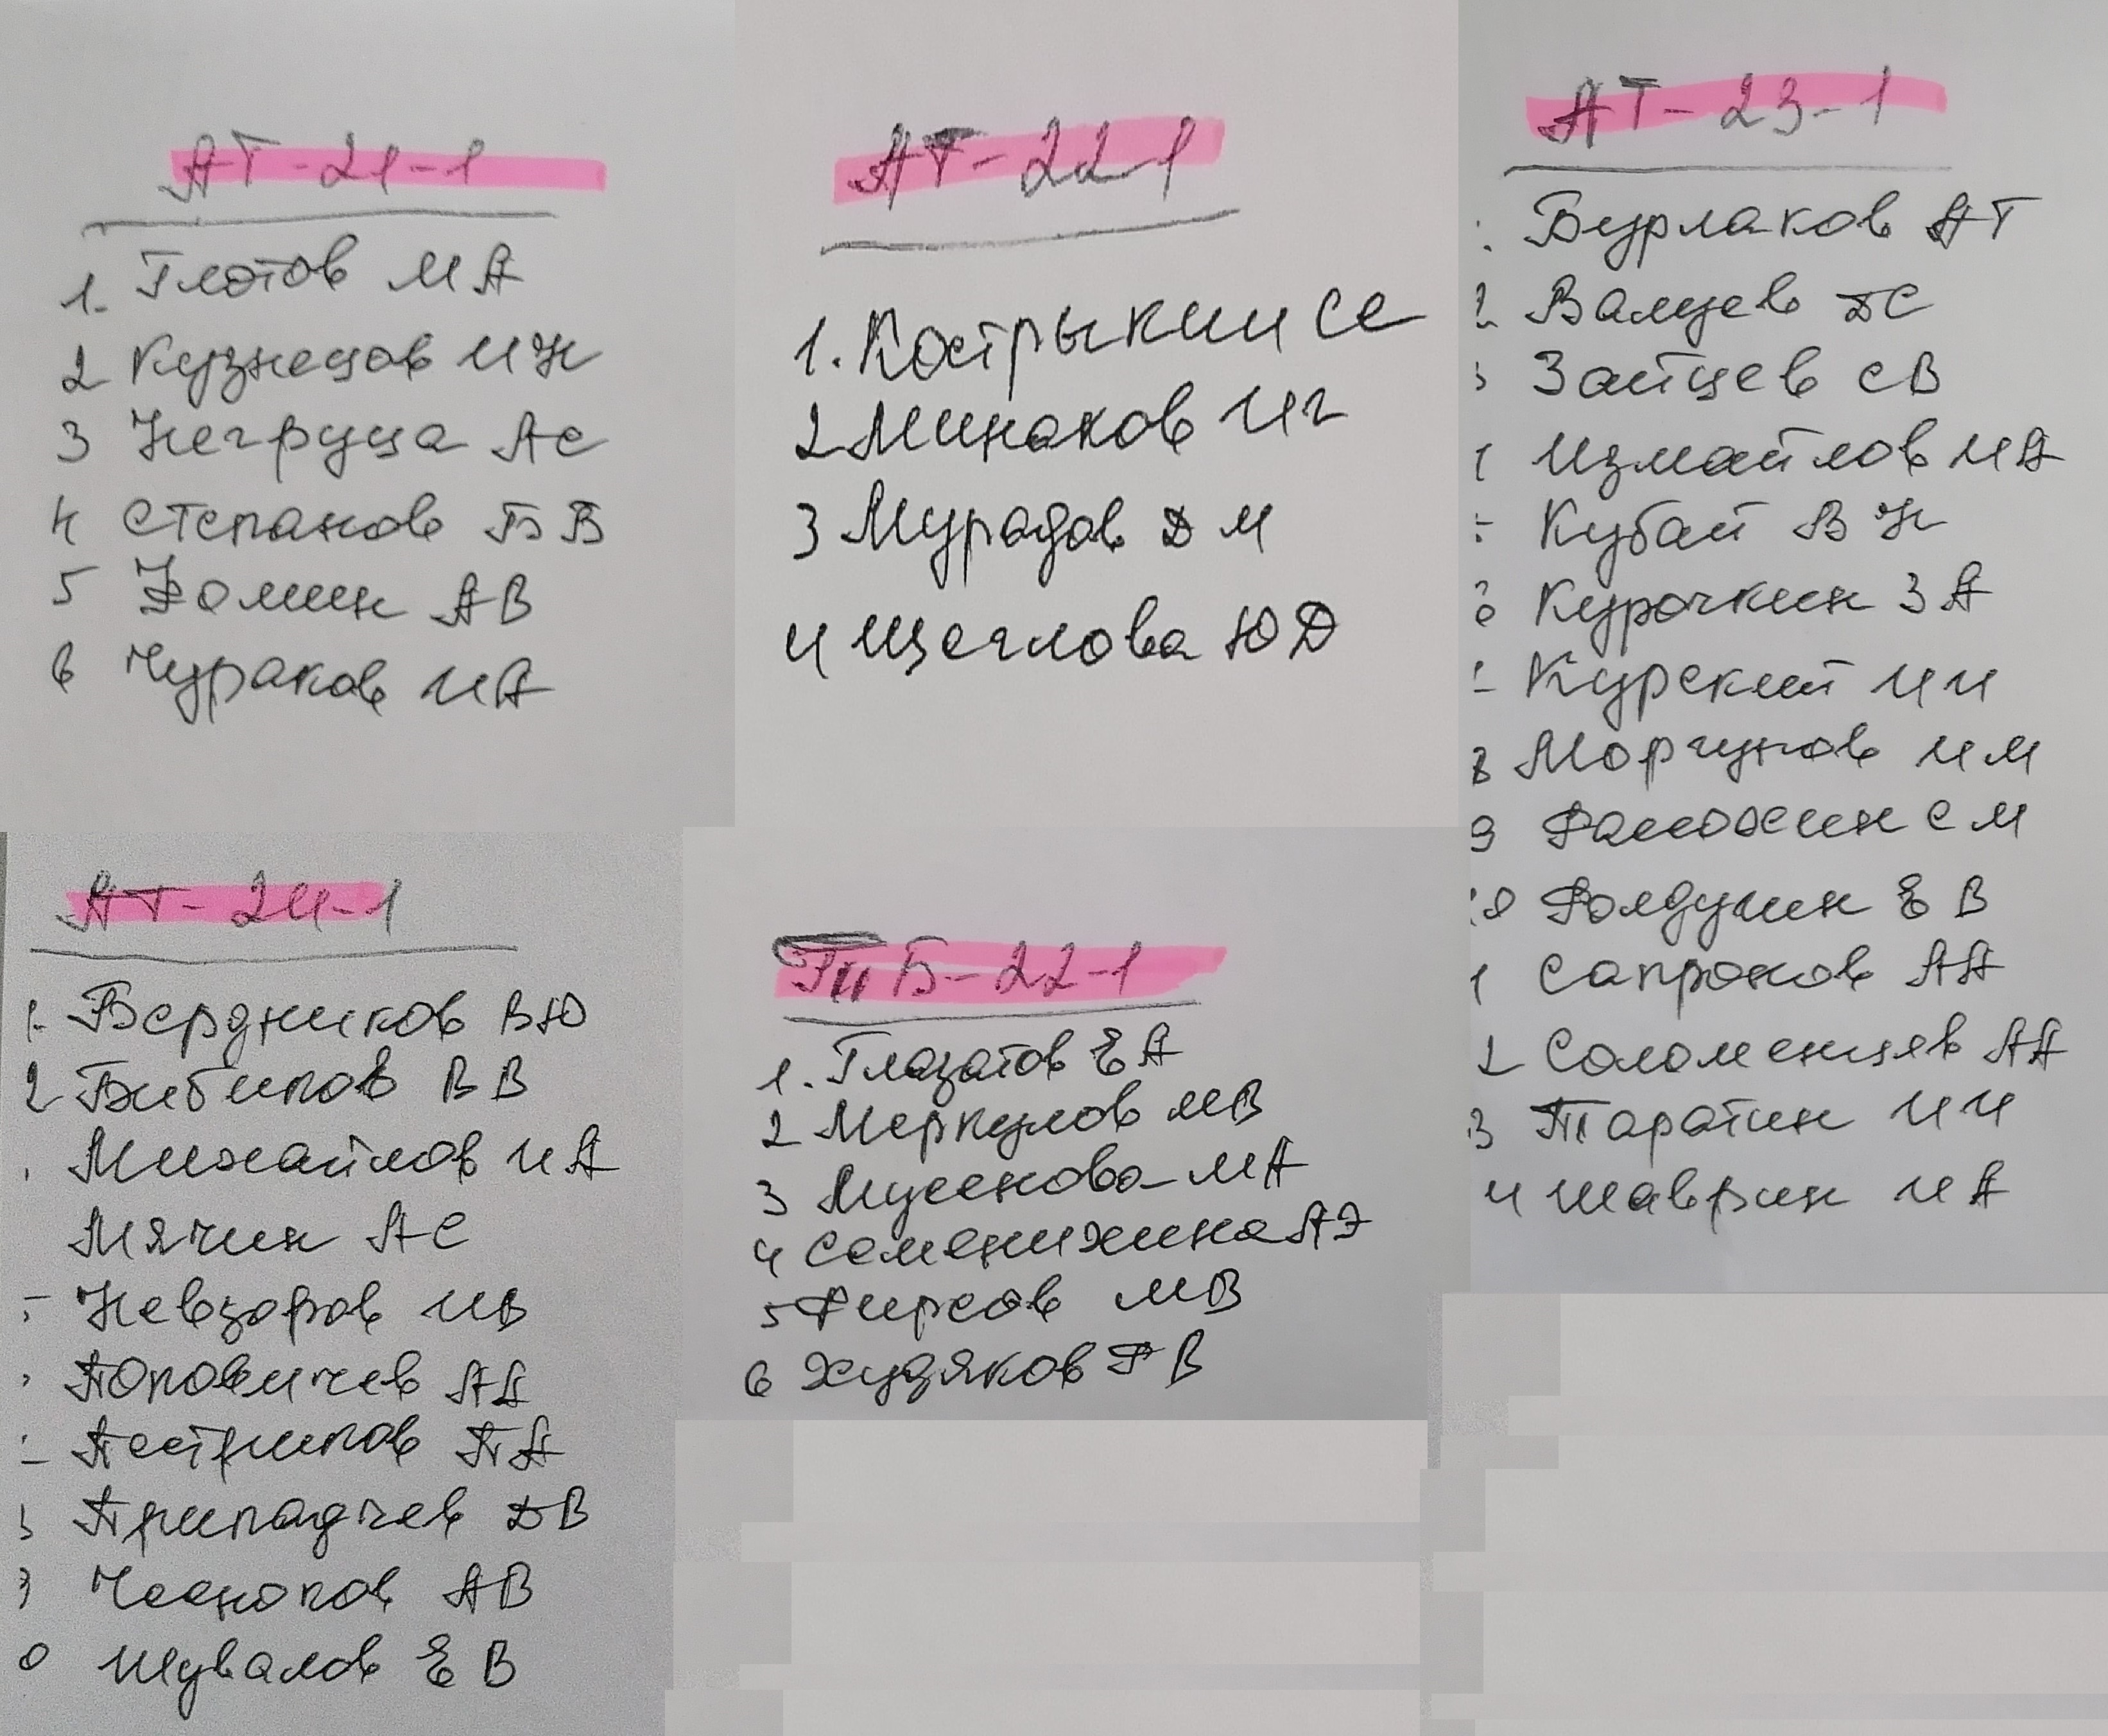 АТ-21-1
1. Глотов МА
2 Кузнецов ИН
3 Негруца АС
4 Степанов БВ
5 Фомин АВ
6 Чураков ИА
АТ-22-1
1. Кострыкин СЕ
2 Минаков ИГ
3 Мурадов ДМ
4 Щеглова ЮД
АТ-23-1
Бурлаков АТ
2 Валуев ДС
3 Зайцев СВ
Измайлов ИА
Кубай ВН
6 Курочкин ЗА
Курский ИИ
8 Моргунов ИМ
9 СМ
10 ЕВ
1 Сапронов АА
2 Соломенцев АА
3 Таратин ИИ
4 Шаврин ИА
АТ-24-1
1. Бердников ВЮ
2 Бибиков ВВ
Михайлов ИА
Мячин АС
Невзоров ИВ
Поповичев АД
Пестриков ПА
Припадчев ДВ
Чесноков АВ
0 Шувалов ЕВ
Б-22-1
1. Глазатов ЕА
2 Меркулов МВ
3 МА
4 Семенихина АЭ
5 Фирсов МВ
6 Худяков РВ